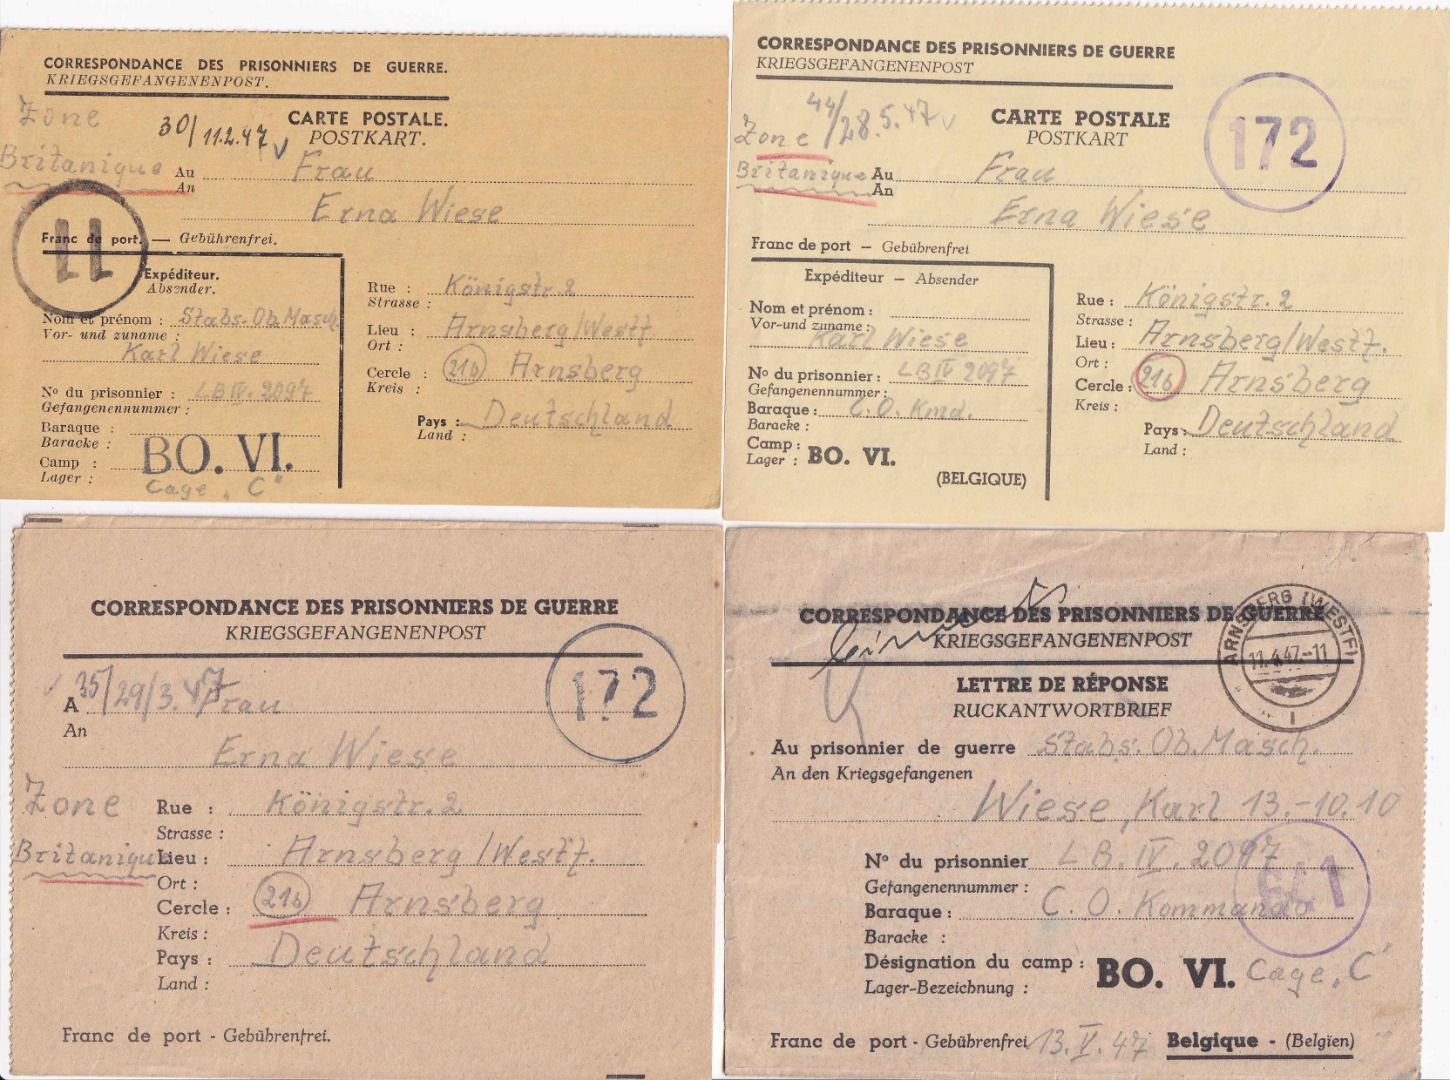 CORRESPONDANCE DES PRISONNIERS DE GUERRE.
KRIEGSGEFANGENENPOST.
Zone
Britanique
30/11.2.47
CARTE POSTALE.
POSTKART.
Au Frau
An
Erna Wiese
11
Franc de port. — Gebührenfrei.
Expéditeur.
Absender.
Nom et prénom : Stabs. Ob. Masch.
Vor- und zuname :
Karl Wiese
No du prisonnier : LB IV. 2097
Gefangenennummer :
Baraque :
Baracke :
Camp : BO. VI.
Lager : Cage „C"
Rue : Königstr. 2
Strasse :
Lieu : Arnsberg/Westf.
Ort :
Cercle : 21b Arnsberg
Kreis :
Pays : Deutschland
Land :
CORRESPONDANCE DES PRISONNIERS DE GUERRE
KRIEGSGEFANGENENPOST
44/28.5.47
Zone
Britanique
172
CARTE POSTALE
POSTKART
Au Frau
An
Erna Wiese
Franc de port — Gebührenfrei
Expéditeur — Absender
Nom et prénom :
Vor-und zuname :
Karl Wiese
No du prisonnier : LB IV 2097
Gefangenennummer :
Baraque : C. O. Kmd.
Baracke :
Camp :
Lager : BO. VI.
(BELGIQUE)
Rue : Königstr. 2
Strasse :
Lieu : Arnsberg/Westf.
Ort :
Cercle : 21b Arnsberg
Kreis :
Pays : Deutschland
Land :
CORRESPONDANCE DES PRISONNIERS DE GUERRE
KRIEGSGEFANGENENPOST
172
A 35/29/3.47 Frau
An
Erna Wiese
Zone
Britanique
Rue : Königstr. 2
Strasse :
Lieu : Arnsberg/Westf.
Ort :
Cercle : 21b Arnsberg
Kreis :
Pays : Deutschland
Land :
Franc de port - Gebührenfrei.
CORRESPONDANCE DES PRISONNIERS DE GUERRE
KRIEGSGEFANGENENPOST
ARNSBERG (WESTF)
11.4.47.-11
LETTRE DE RÉPONSE
RUCKANTWORTBRIEF
Au prisonnier de guerre Stabs. Ob. Masch.
An den Kriegsgefangenen
Wiese, Karl 13.-10.10
No du prisonnier LB. IV. 2097
Gefangenennummer :
Baraque : C. O. Kommando
Baracke :
Désignation du camp : BO. VI. Cage „C"
Lager-Bezeichnung :
Franc de port - Gebührenfrei 13. V. 47 Belgique - (Belgïen)